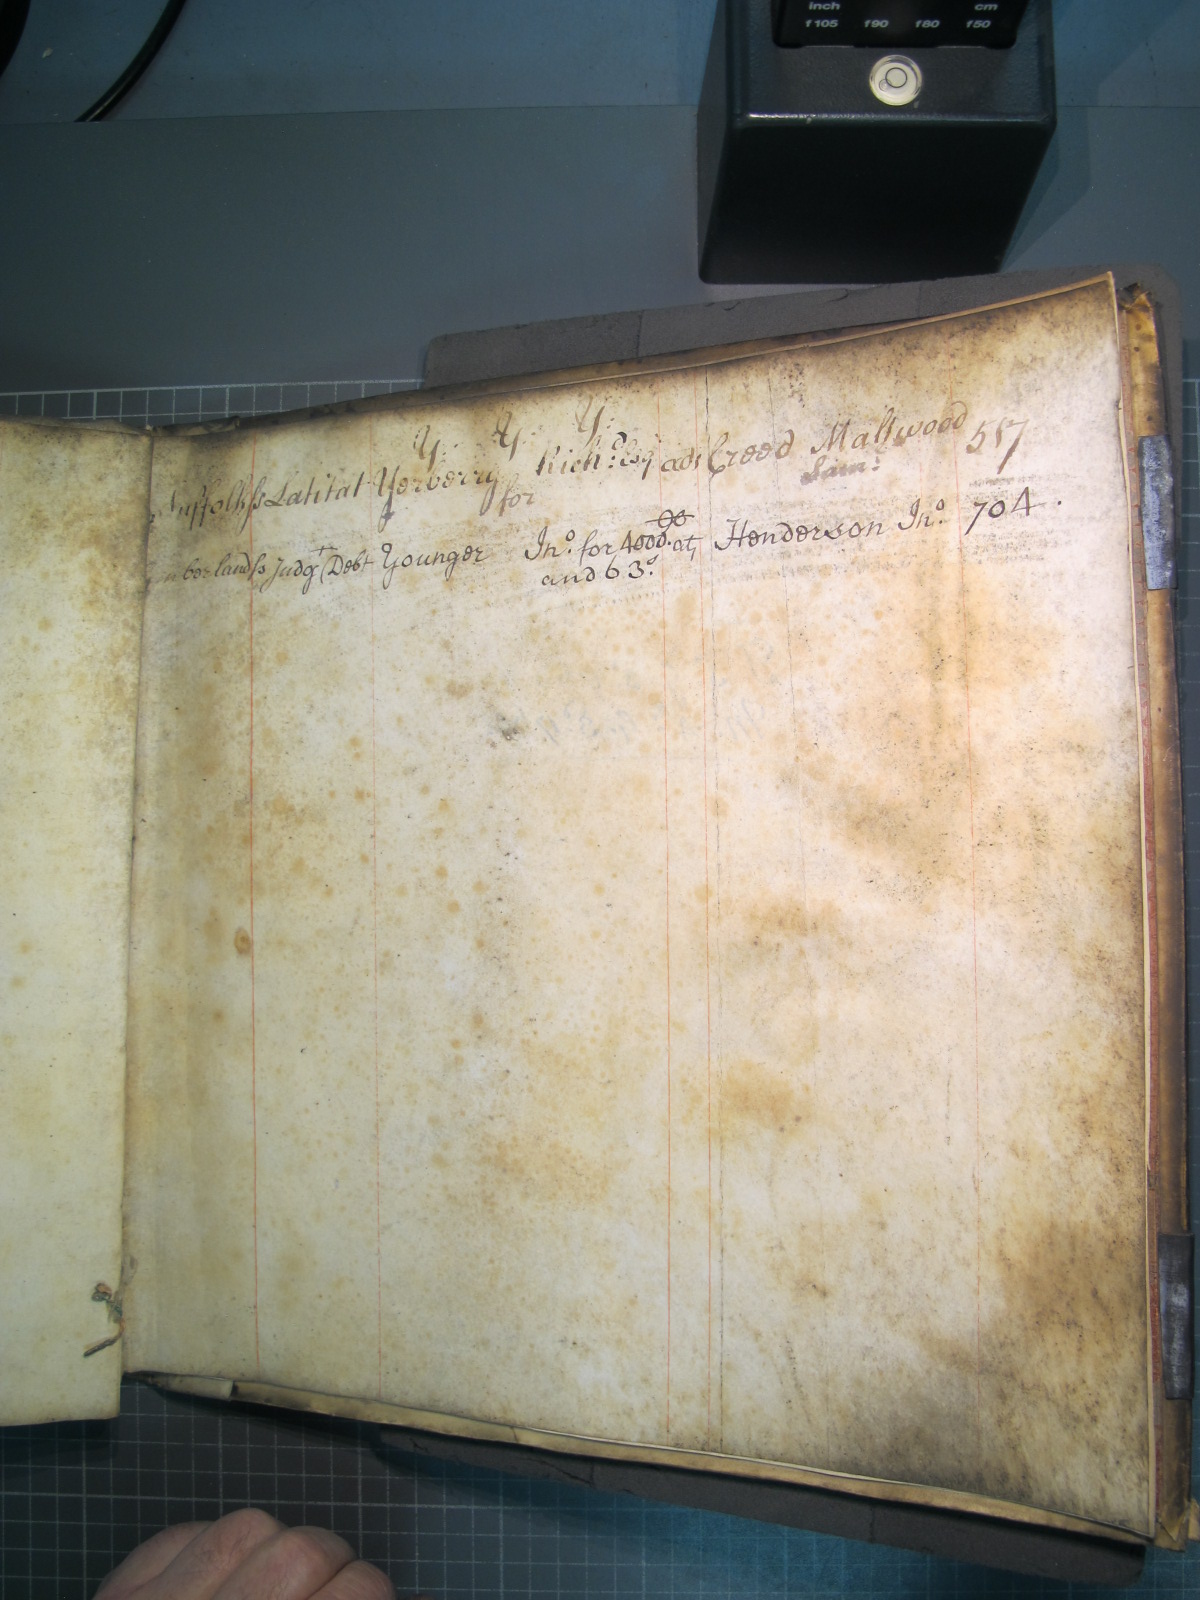 inch cm
f105 f90 f80 f50
Y: Y: Y:
Suffolk ſs Latitat Yerberry Rich.d Esq ads Creed Maltwood 557
for Sam:
berland ſs Judg.t Debt Younger Jn.o for 4000. at Henderson Jn.o 704.
and 63.s